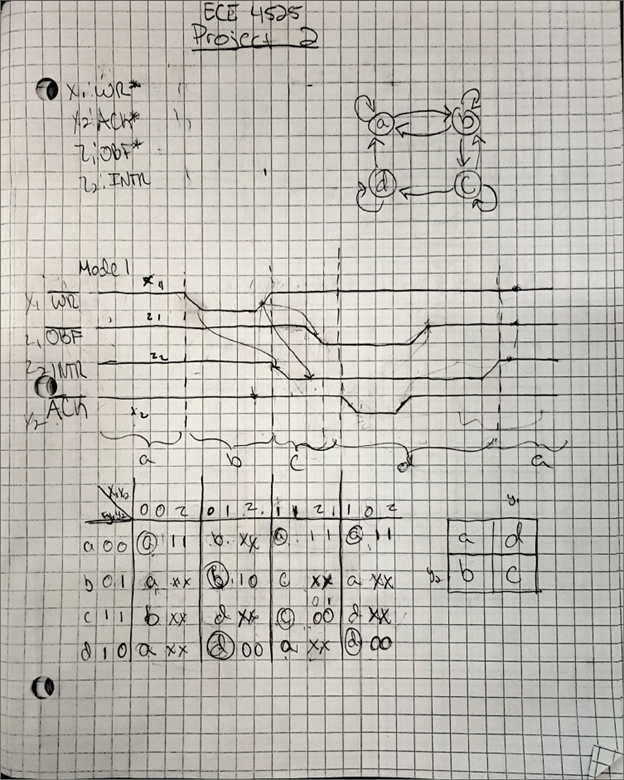 ECE 4525
Project 2
X1: WR*
X2: ACK*
Z1: OBF*
Z2: INTR
a b
d c
Mode 1
X1 WR X1
Z1 OBF Z1
Z2 INTR Z2
X2 ACK X2
a b c d a
X1X2
y1y2 0 0 Z 0 1 Z 1 1 Z 1 0 Z
a 0 0 a 11 b xx a 11 a 11
b 0 1 a xx b 10 c xx a xx
c 1 1 b xx d xx c 00 d xx
d 1 0 a xx d 00 a xx d 00
y1
a d
y2 b c